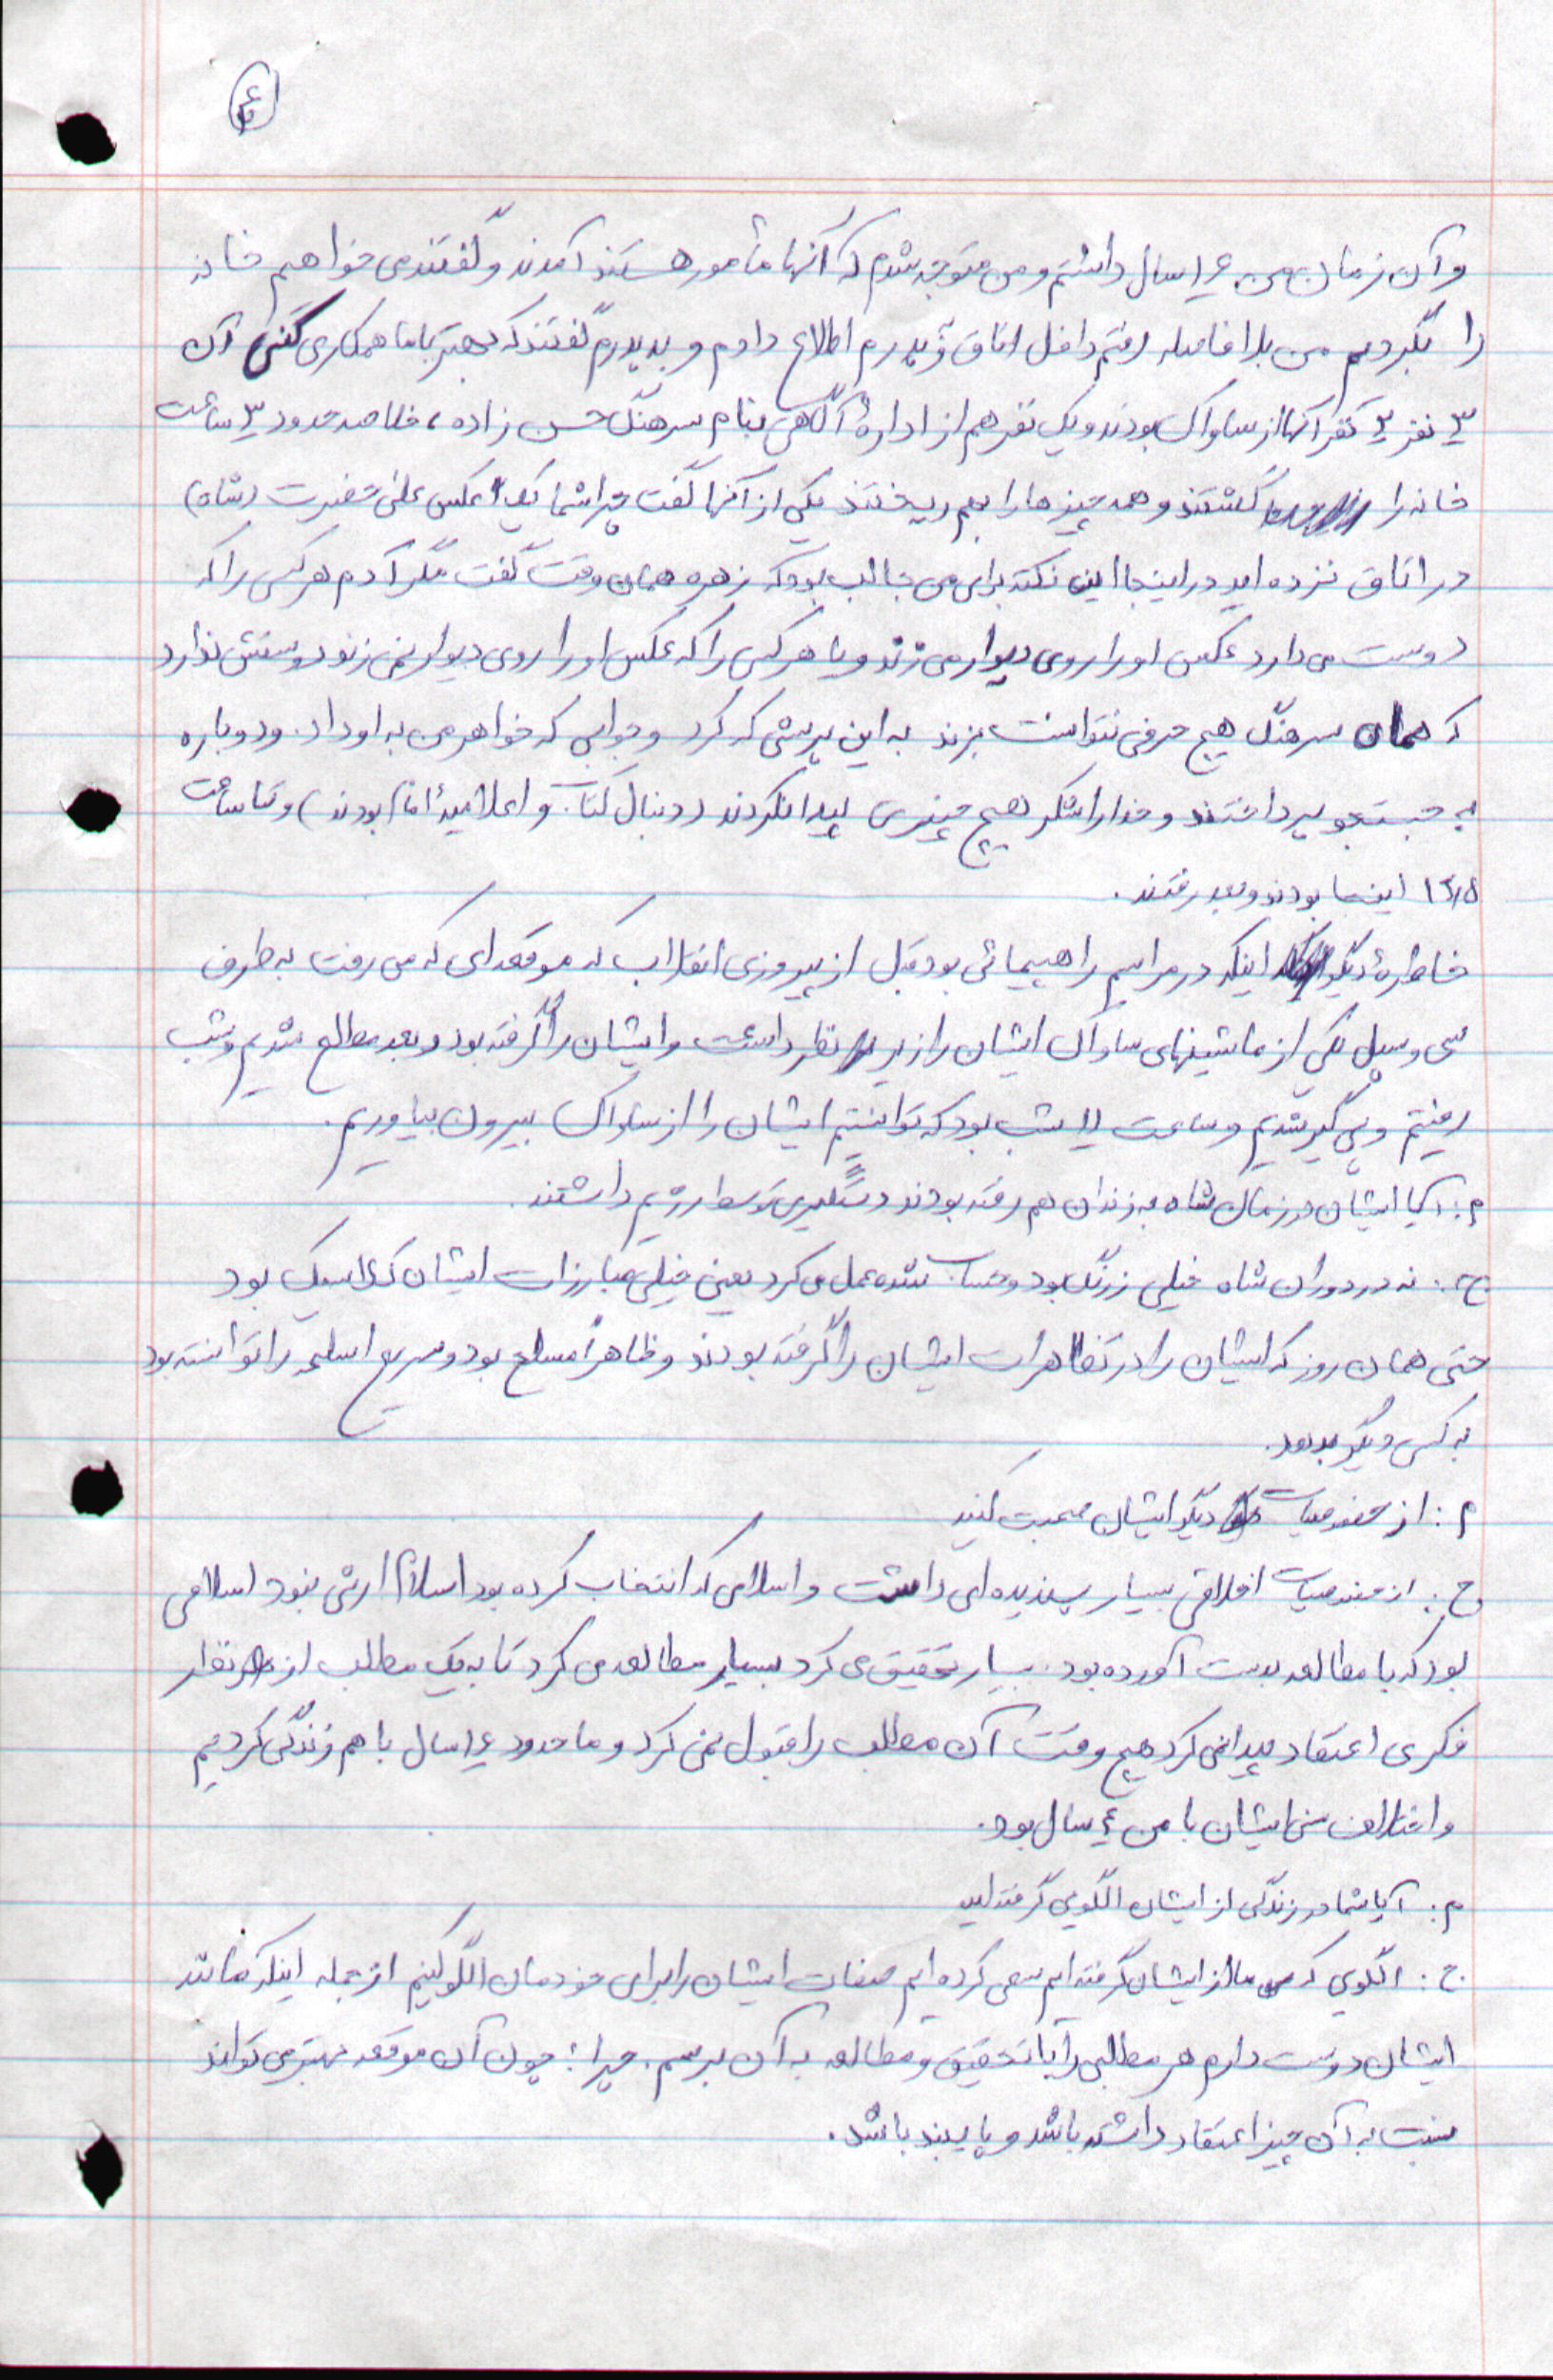 ۴
و آن زمان من ۱۶ سال داشتم و من متوجه شدم که آنها مأمور هستند آمدند و گفتند می خواهیم خانه
را بگردیم من بلافاصله رفتم داخل اتاق و پدرم اطلاع دادم و به پدرم گفتند که بهتر با ما همکاری کنی آن
۳ نفر ۲ نفر آنها از ساواک بودند و یک نفر هم از ادارهٔ آگاهی بنام سرهنگ حسن زاده، خلاصه حدود ۳ ساعت
خانه را گشتند و همه چیزها را بهم ریختند یکی از آنها گفت چرا شما یک عکس اعلی حضرت (شاه)
در اتاق نزده اید در اینجا این نکته برای من جالب بود که زهره همان وقت گفت مگر آدم هر کس را که
دوست می دارد عکس او را روی دیوار می زند و یا هر کس را که عکس او را روی دیوار نمی زند دوستش ندارد
که همان سرهنگ هیچ حرفی نتوانست بزند به این پرسشی که کرد و جوابی که خواهر من به او داد. و دوباره
به جستجو پرداختند و خدا را شکر هیچ چیزی پیدا نکردند (دنبال کتاب و اعلامیهٔ امام بودند) و تا ساعت
۱۲/۵ اینجا بودند و بعد رفتند.
خاطرهٔ دیگر اینکه در مراسم راهپیمائی بود قبل از پیروزی انقلاب که موقعه ای که می رفت به طرف
سی و سه پل یکی از ماشینهای ساواک ایشان را زیر نظر داشت و ایشان را گرفته بود و بعد مطلع شدیم و شب
رفتیم و پی گیر شدیم و ساعت ۱۱ شب بود که توانستیم ایشان را از ساواک بیرون بیاوریم.
م: آیا ایشان در زمان شاه به زندان هم رفته بودند دستگیری توسط رژیم داشتند.
ج: نه در دوران شاه خیلی زرنگ بود و حساب شده عمل می کرد یعنی خیلی مبارزات ایشان کلاسیک بود
حتی همان روز که ایشان را در تظاهرات ایشان را گرفته بودند و ظاهراً مسلح بود و سریع اسلحه را توانسته بود
به کس دیگر بدهد.
م: از خصوصیات دیگر ایشان صحبت کنید
ج: از خصوصیات اخلاقی بسیار پسندیده ای داشت و اسلامی که انتخاب کرده بود اسلام ارثی نبود اسلامی
بود که با مطالعه بدست آورده بود. بسیار تحقیق می کرد بسیار مطالعه می کرد تا به یک مطلب از نظر
فکری اعتقاد پیدا نمی کرد هیچ وقت آن مطلب را قبول نمی کرد و ما حدود ۱۶ سال با هم زندگی کردیم
و اختلاف سنی ایشان با من ۴ سال بود.
م: آیا شما در زندگی از ایشان الگویی گرفته اید
ج: الگویی که ما از ایشان گرفته ایم سعی کرده ایم صفات ایشان را برای خودمان الگو کنیم از جمله اینکه مانند
ایشان دوست دارم هر مطلبی را با تحقیق و مطالعه به آن برسم. چرا؛ چون آن موقعه بهتر می تواند
نسبت به آن چیز اعتقاد داشته باشد و پایبند باشد.